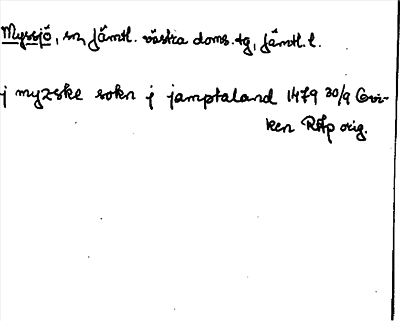 Myssjö, sn, Jämtl. västra doms. tg, Jämtl. l.
j myzske sokn j jamptaland 1479 20/9 Grö-
ken RAp orig.